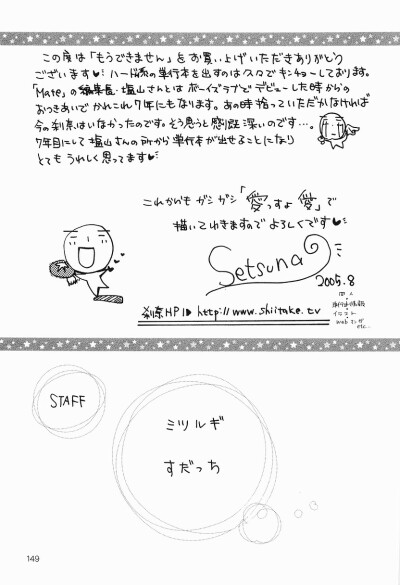 この度は「もうできません」をお買い上げいただきありがとう
ございます♥ ハード係の単行本を出すのは久々でキンチョーしております。
「Mate」の編集長・塩山さんとはボーイズラブでデビューした時からの
おつきあいでかれこれ7年にもなります。あの時拾っていただかなければ
今の刹奈はいなかったのです。そう思うと感慨深いのです…。
7年目にして塩山さんの所から単行本が出せることになり
とても うれしく思ってます♥
これからも ガシガシ「愛っすよ 愛」で
描いてれきますので よろしくです♥
Setsuna
2005.8
同人
単行本情報
イラスト
webマンガ
etc..
刹奈HP▶ http://www.shiitake.tv
STAFF
ミツルギ
すだっち
149